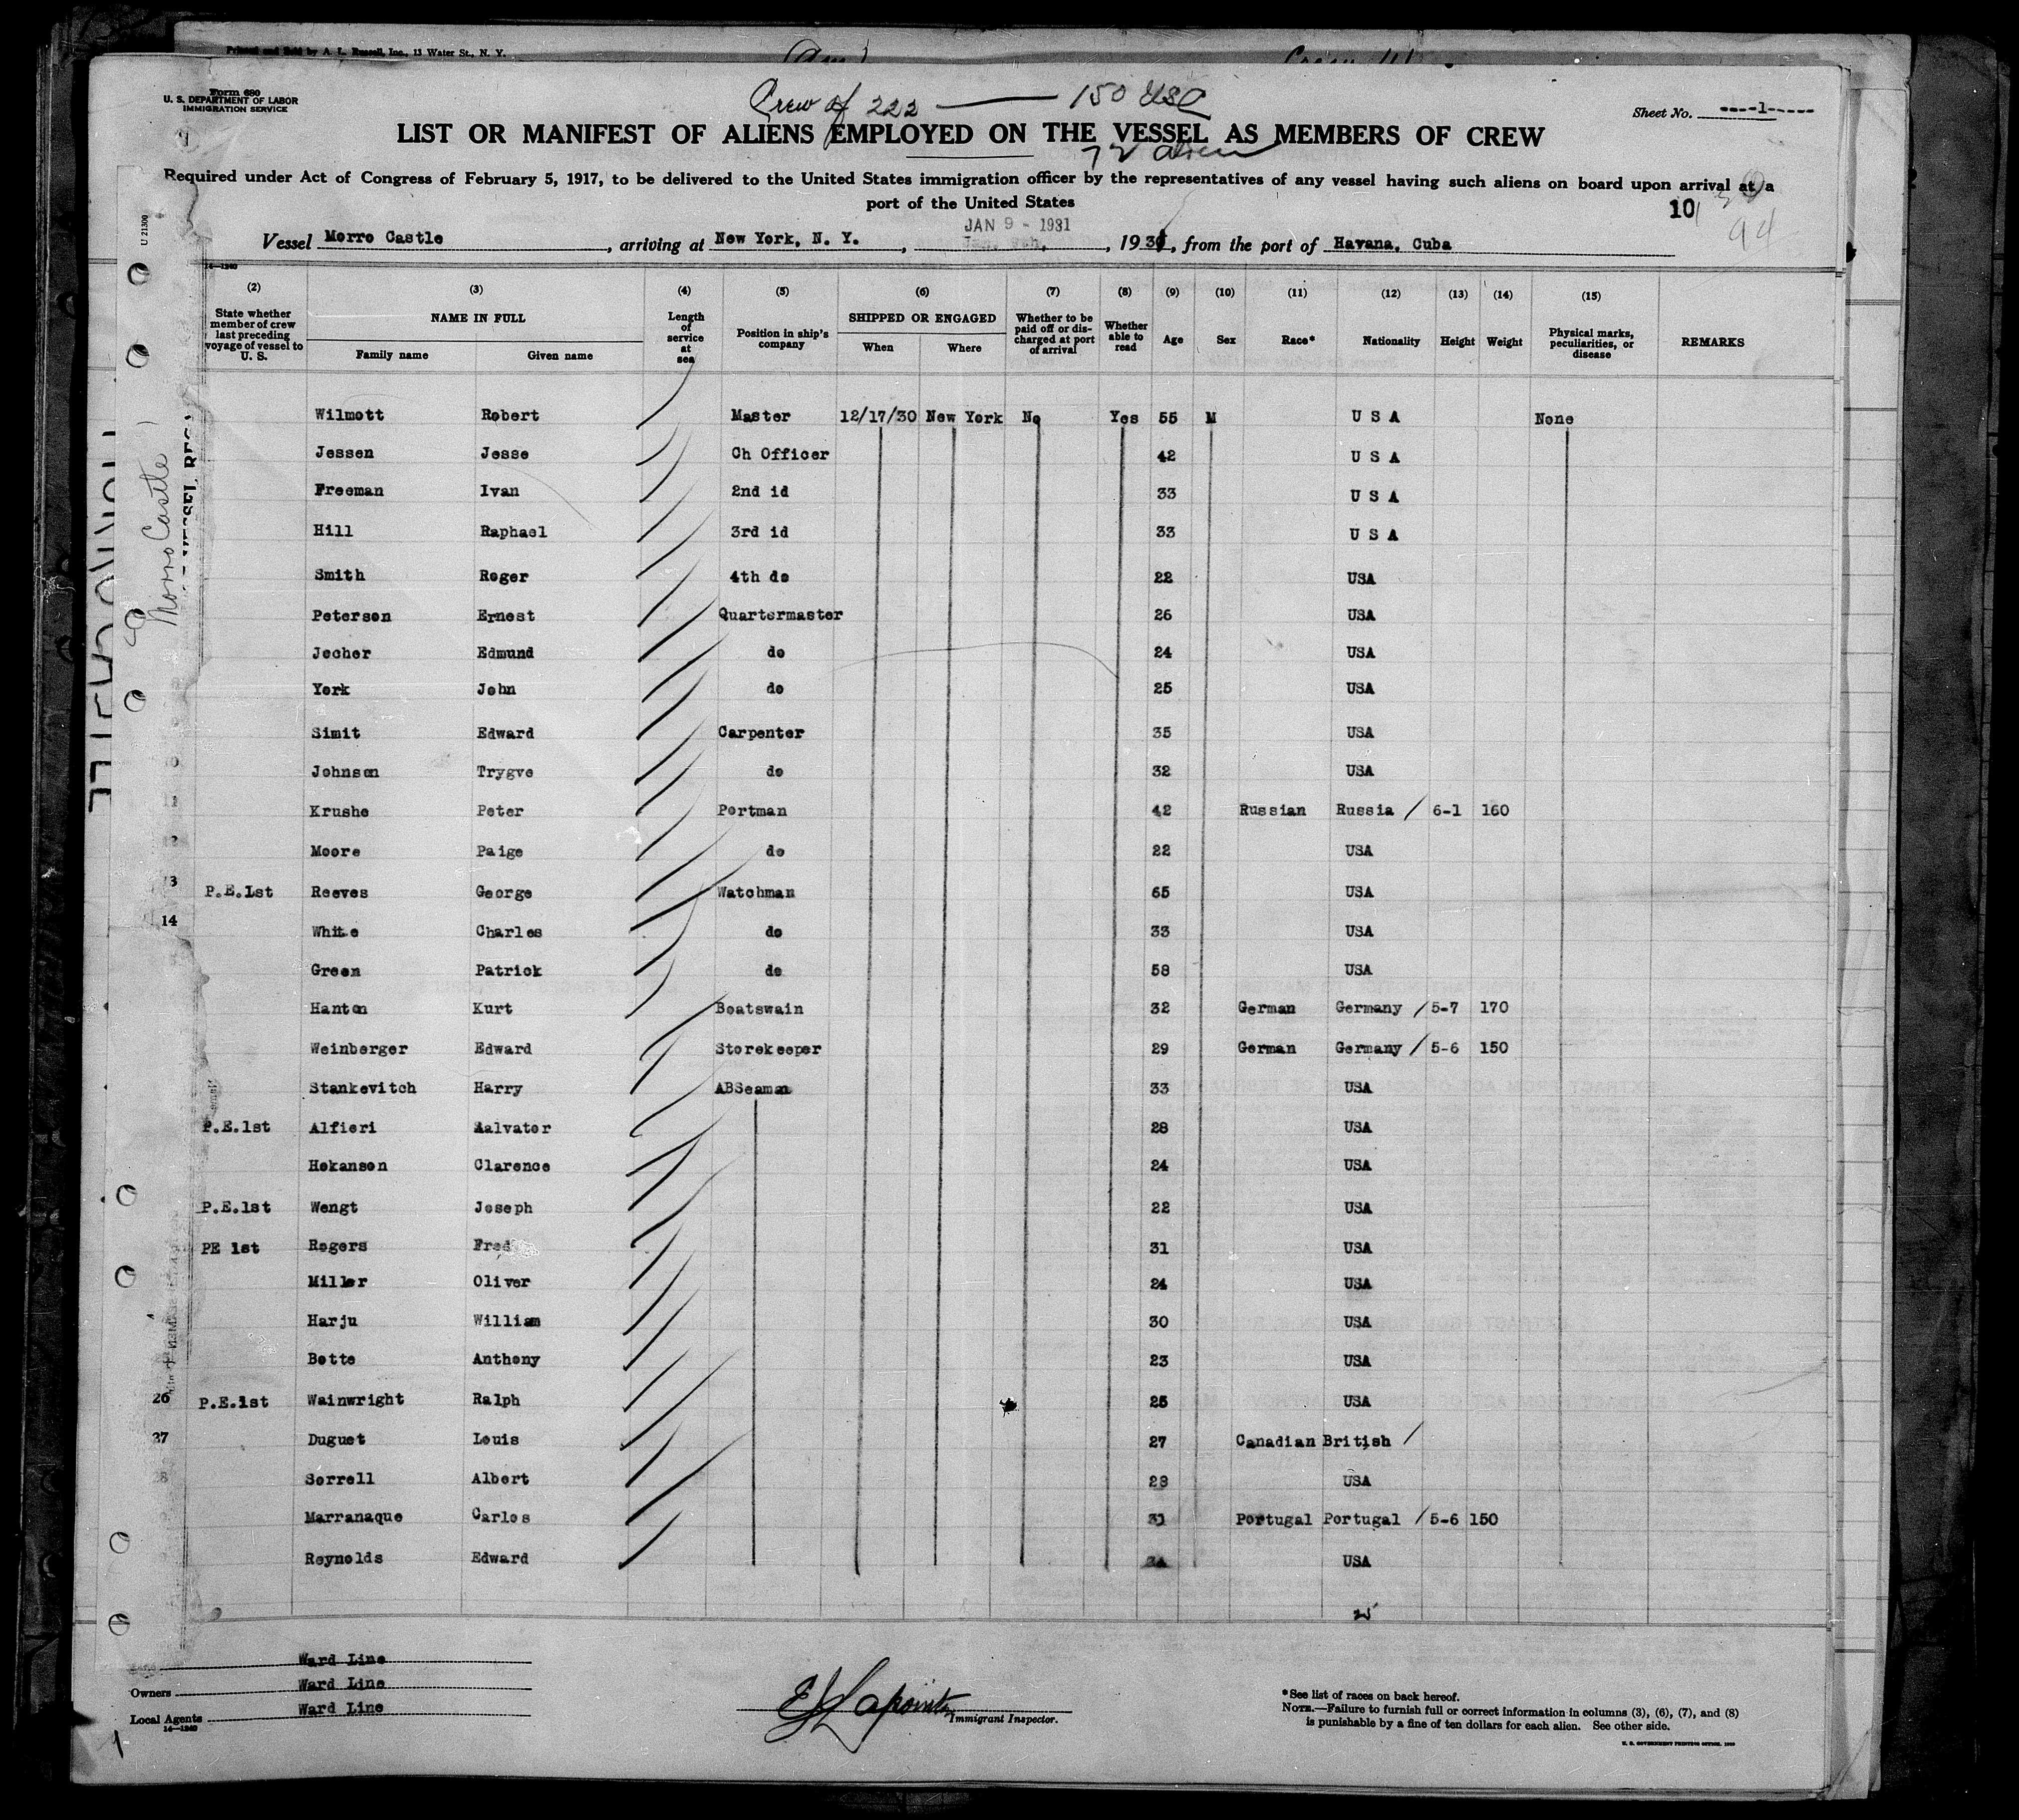 Printed and Sold by A. L. Russell, Inc., 13 Water St., N. Y.
Form 680
U. S. DEPARTMENT OF LABOR
IMMIGRATION SERVICE
Crew of 222 — 150 USC
72 alien
Sheet No. ----1-----
LIST OR MANIFEST OF ALIENS EMPLOYED ON THE VESSEL AS MEMBERS OF CREW
Required under Act of Congress of February 5, 1917, to be delivered to the United States immigration officer by the representatives of any vessel having such aliens on board upon arrival at a
port of the United States
10
94
U 21300
Morro Castle
JAN 9 - 1931
Vessel Morro Castle, arriving at New York, N. Y., Jan. 9th, 1931, from the port of Havana, Cuba
14—1240
(2) (3) (4) (5) (6) (7) (8) (9) (10) (11) (12) (13) (14) (15)
State whether member of crew last preceding voyage of vessel to U. S. NAME IN FULL Family name Given name Length of service at sea Position in ship's company SHIPPED OR ENGAGED When Where Whether to be paid off or discharged at port of arrival Whether able to read Age Sex Race* Nationality Height Weight Physical marks, peculiarities, or disease REMARKS
Wilmott Robert Master 12/17/30 New York No Yes 55 M U S A None
Jessen Jesse Ch Officer 42 U S A
Freeman Ivan 2nd id 33 U S A
Hill Raphael 3rd id 33 U S A
Smith Roger 4th do 22 USA
Peterson Ernest Quartermaster 26 USA
Jocher Edmund do 24 USA
York John do 25 USA
Simit Edward Carpenter 35 USA
Johnson Trygve do 32 USA
11 Krushe Peter Portman 42 Russian Russia / 6-1 160
12 Moore Paige do 22 USA
13 P.E.1st Reeves George Watchman 65 USA
14 White Charles do 33 USA
Green Patrick do 58 USA
Hanton Kurt Boatswain 32 German Germany / 5-7 170
Weinberger Edward Storekeeper 29 German Germany / 5-6 150
Stankevitch Harry ABSeaman 33 USA
P.E.1st Alfieri Aalvator 28 USA
Hokanson Clarence 24 USA
P.E.1st Wengt Joseph 22 USA
PE 1st Rogers Fred 31 USA
Miller Oliver 24 USA
Harju William 30 USA
Botto Anthony 23 USA
26 P.E.1st Wainwright Ralph 25 USA
27 Duguet Louis 27 Canadian British /
28 Sorrell Albert 28 USA
Marranaque Carlos 31 Portugal Portugal / 5-6 150
Reynolds Edward USA
25
Ward Line
Owners Ward Line
Local Agents Ward Line
14—1240
E J Lapointe
Immigrant Inspector.
*See list of races on back hereof.
NOTE.—Failure to furnish full or correct information in columns (3), (6), (7), and (8)
is punishable by a fine of ten dollars for each alien. See other side.
U. S. GOVERNMENT PRINTING OFFICE: 1929